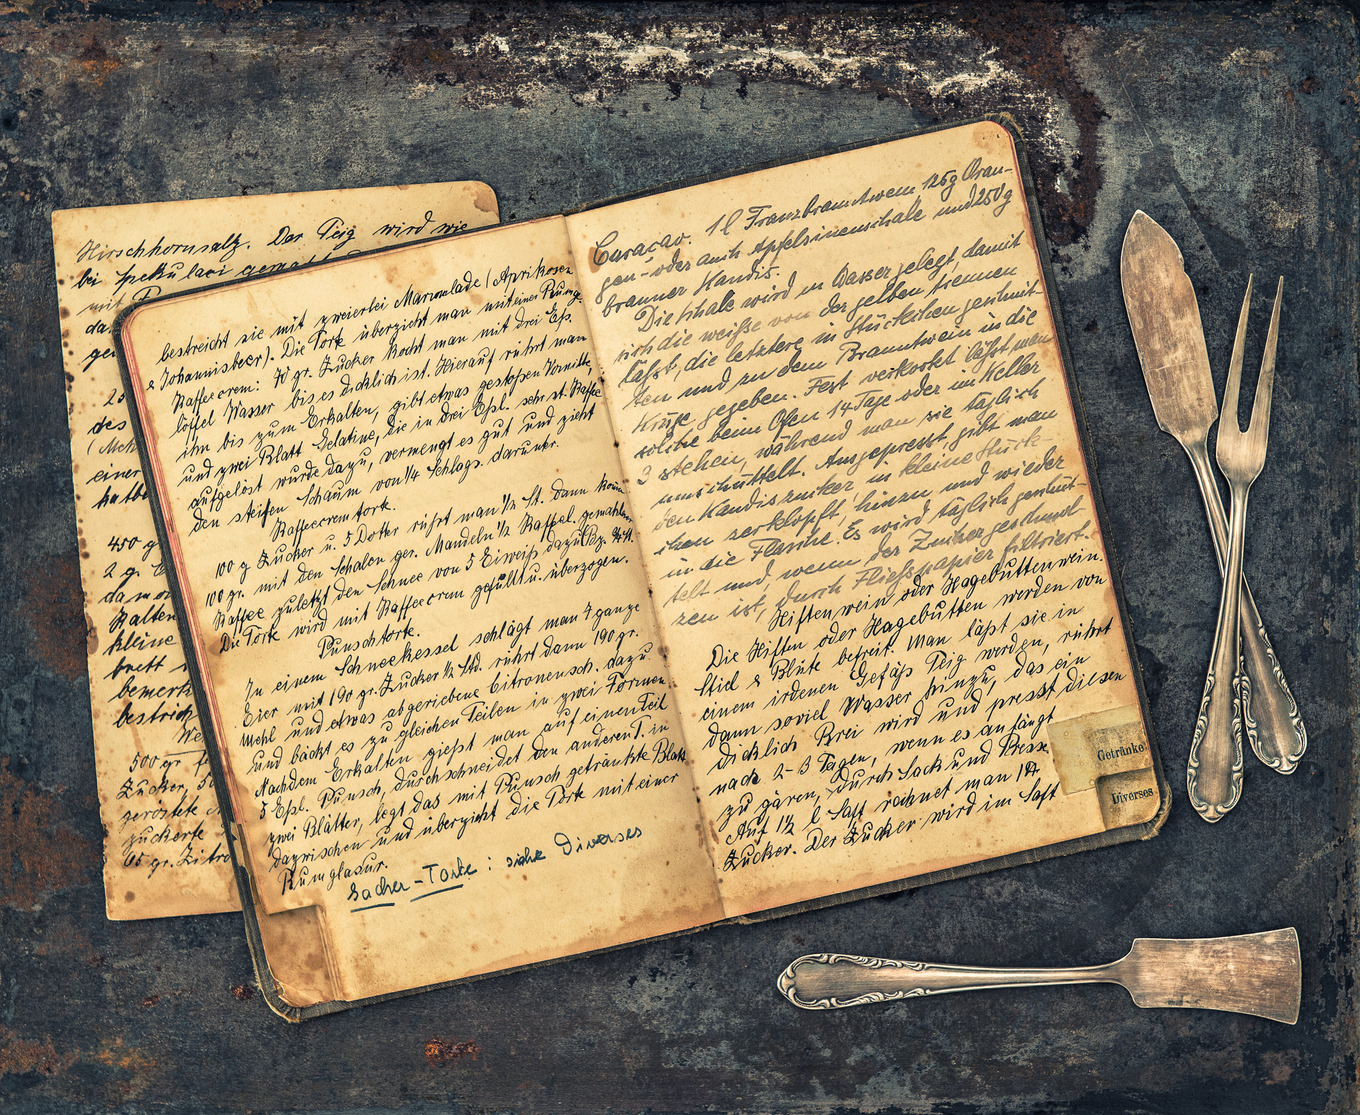 Hirschhornsalz. Der Teig wird wie
bei Spekulaci
mit
da
ge
25
des
(Meh
einer
halbe
450 g
2 g.
da
kalten
kleine
brett
bemerk
bestrich
We
500 gr
Zucker, 50
geröstete
zuckerte
65 gr. Zitro
bestreicht sie mit zweierlei Marmelade (Aprikosen
& Johannisbeer). Die Tork überzieht man mit einer Rumgl
Kaffeecrem: 70 gr. Zucker kocht man mit drei Eßl.
löffel Wasser bis es dicklich ist. Hierauf rührt man
ihn bis zum Erkalten, gibt etwas gestoßen Vanille
und zwei Blatt Gelatine, die in drei Eßl. sehr st. Kaffee
aufgelöst wurde dazu, vermengt es gut und zieht
den steifen Schaum von 1/4 Schlags. darunter.
Kaffeecremtork.
100 g Zucker u. 5 Dotter rührt man 1/2 St. dann
100 gr. mit den Schalen ger. Mandeln 1/2 Kaffel. gemahlen
Kaffee zuletzt den Schnee von 5 Eiweiß dazu
Die Tork wird mit Kaffeecrem gefüllt u. überzogen.
Punschtork.
In einem Schneekessel schlägt man 4 ganze
Eier mit 190 gr. Zucker 1/2 Std. rührt dann 190 gr.
Mehl und etwas abgeriebene Citronensch. dazu
und bäckt es zu gleichen Teilen in zwei Formen
Nachdem Erkalten gießt man auf einen Teil
5 Eßl. Punsch, durchschneidet den anderen T. in
zwei Blätter, legt das mit Punsch getränkte Blatt
dazwischen und überzieht die Tork mit einer
Rumglasur.
Sacher-Torte: siehe Diverses
Curaçao. 1 l Franzbranntwein 125 g Oran-
gen- oder auch Apfelsinenschale und 250 g
brauner Kandis.
Die Schale wird in Wasser gelegt, damit
sich die weiße von der gelben trennen
läßt, die letztere in Stückchen geschnit-
ten und zu dem Branntwein in die
Kruge gegeben. Fest verkorkt läßt man
solche beim Ofen 14 Tage oder im Keller
3 stehen, während man sie täglich
umschüttelt. Ausgepresst, gibt man
den Kandiszucker in kleine Stück-
chen zerklopft hinzu und wieder
in die Flasche. Es wird täglich geschüt-
telt und, wenn der Zucker geschmol-
zen ist, durch Fließpapier filtriert.
Hiftenwein oder Hagebuttenwein.
Die Hiften oder Hagebutten werden von
Stiel & Blüte befreit. Man läßt sie in
einem irdenen Gefäß teig werden, rührt
dann soviel Wasser hinzu, das ein
dicklich Brei wird und presst diesen
nach 2-3 Tagen, wenn es anfängt
zu gären, durch Sack und Presse
Auf 1 1/2 l Saft rechnet man 1 tt.
Zucker. Der Zucker wird im Saft
Getränke
Diverses